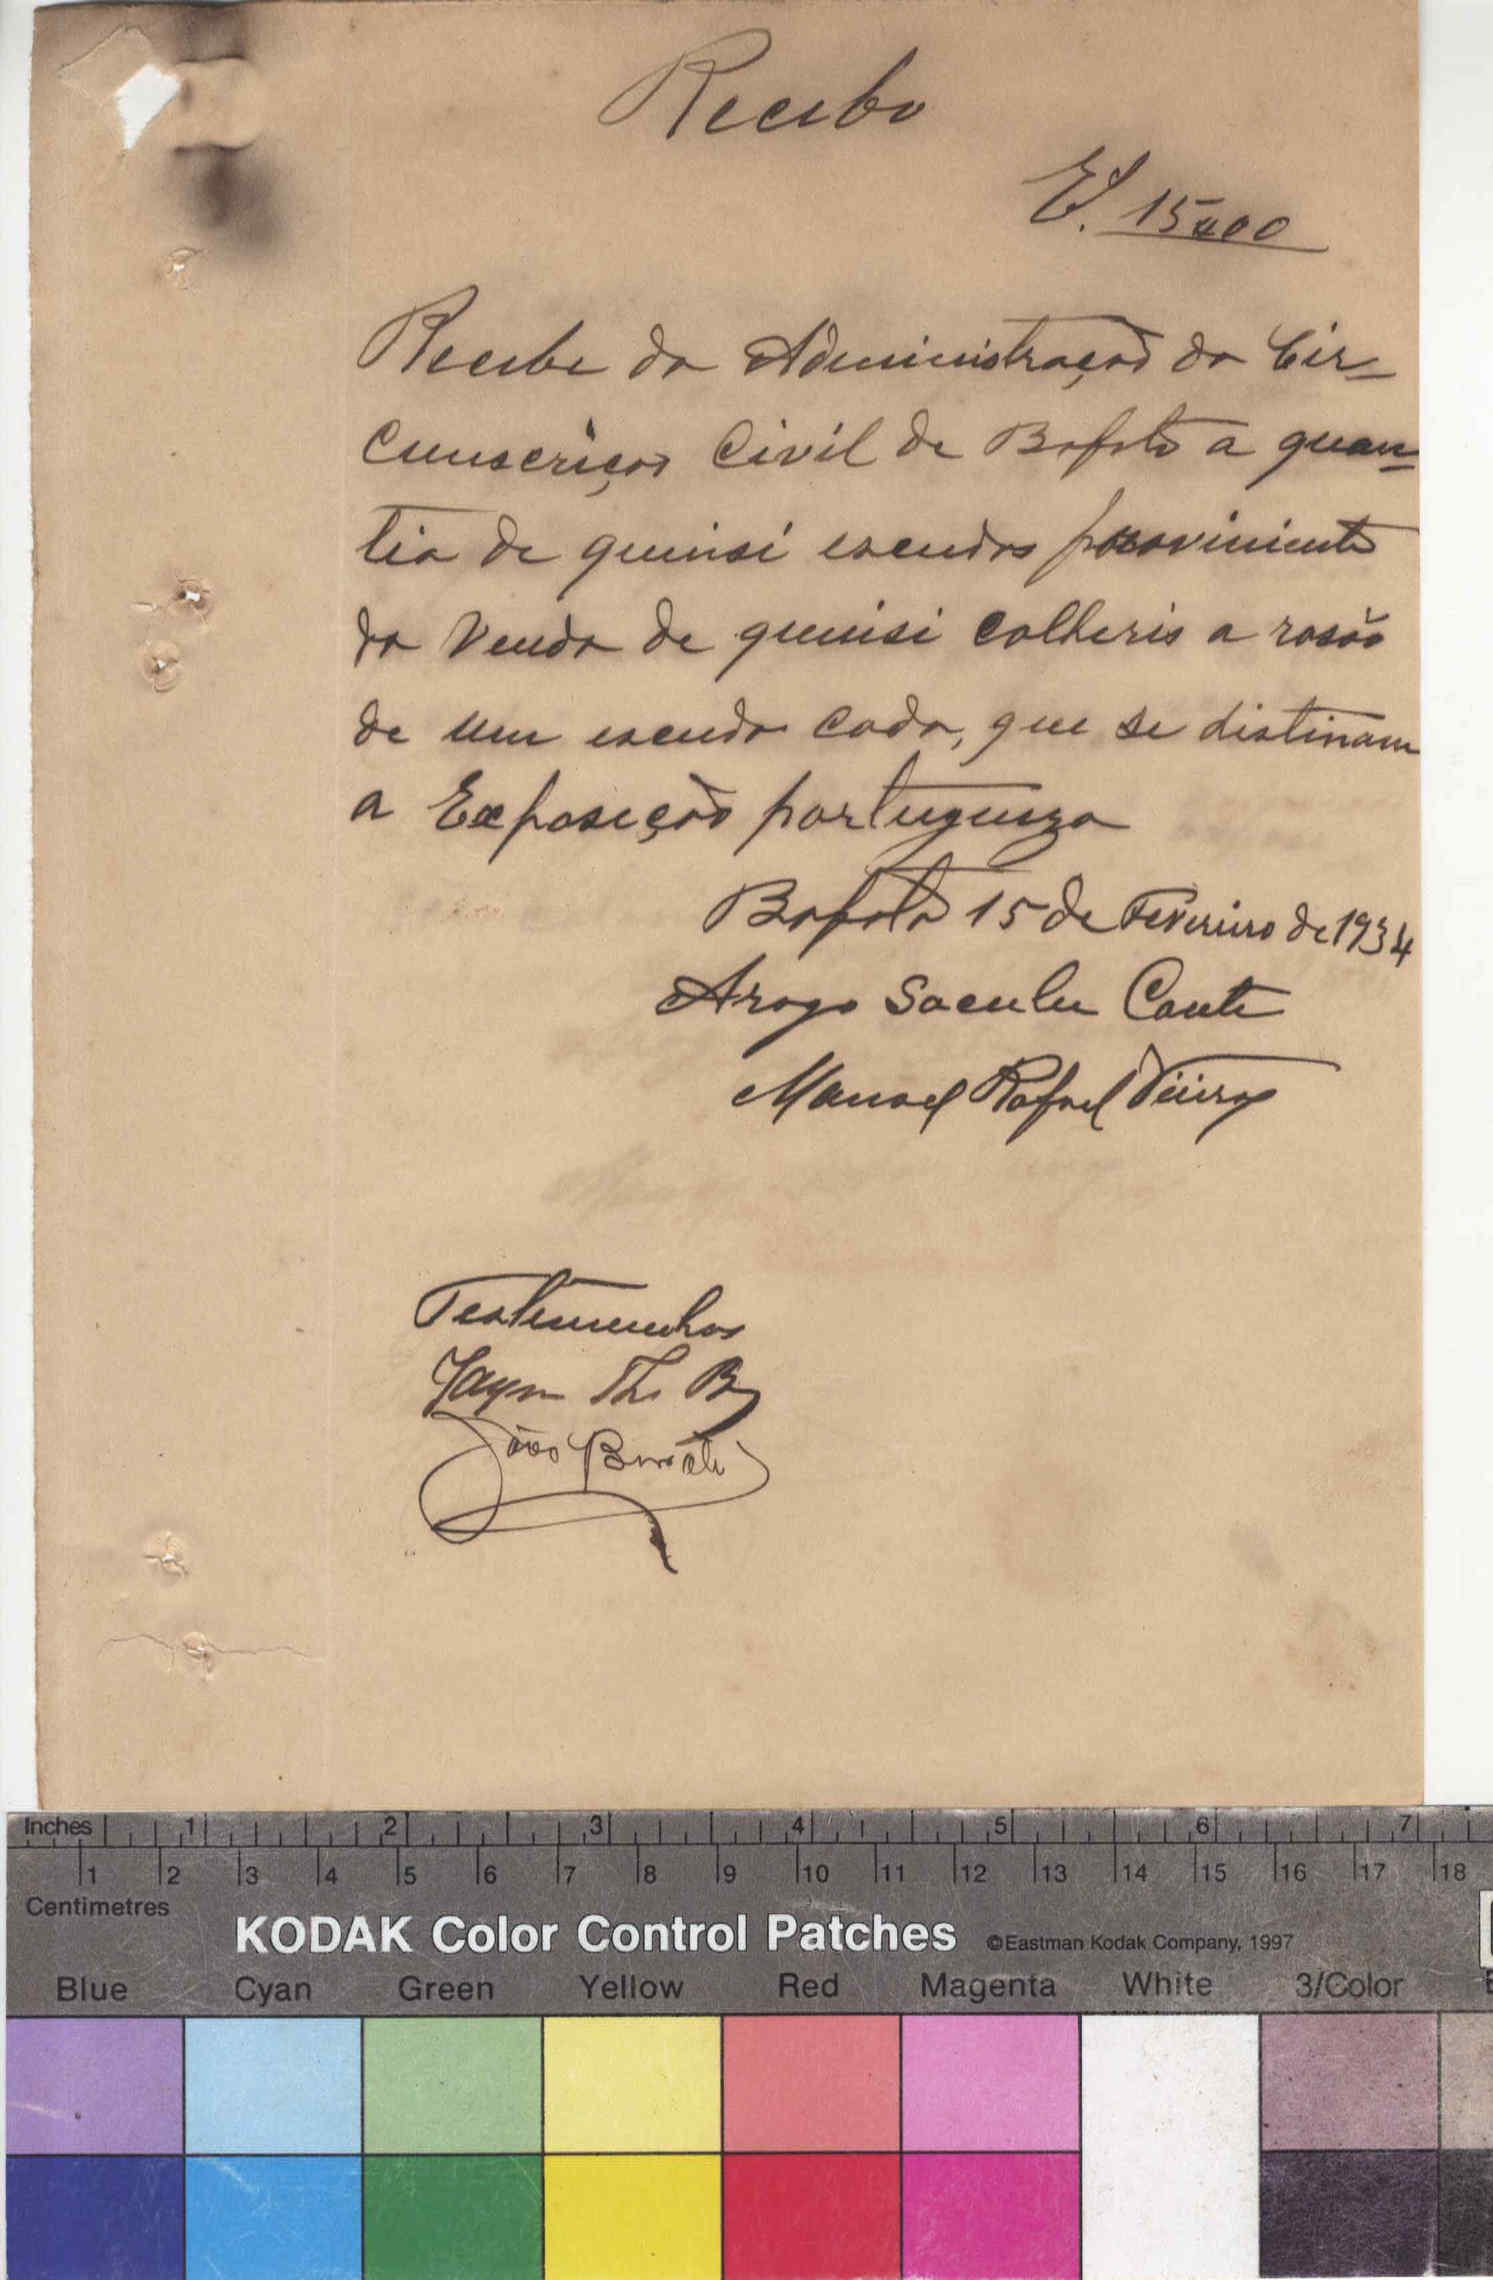 Recibo
E. 15$00
Recebe da Administração da Cir-
cunscrição Civil de Bafatá a quan-
tia de quinsi escudos proviniente
da venda de quinsi colheris a rasão
de um escudo cada, que se distinam
a Exposição portugueza
Bafatá 15 de Fevereiro de 1934
Arago Saculu Cante
Manoel Rafael Vieira
Testemunhas
João
Inches 1 2 3 4 5 6 7
1 2 3 4 5 6 7 8 9 10 11 12 13 14 15 16 17 18
Centimetres
KODAK Color Control Patches ©Eastman Kodak Company, 1997
Blue Cyan Green Yellow Red Magenta White 3/Color